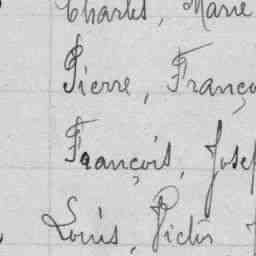 Charles, Marie
Pierre, Franço
François, Josep
Louis, Victor